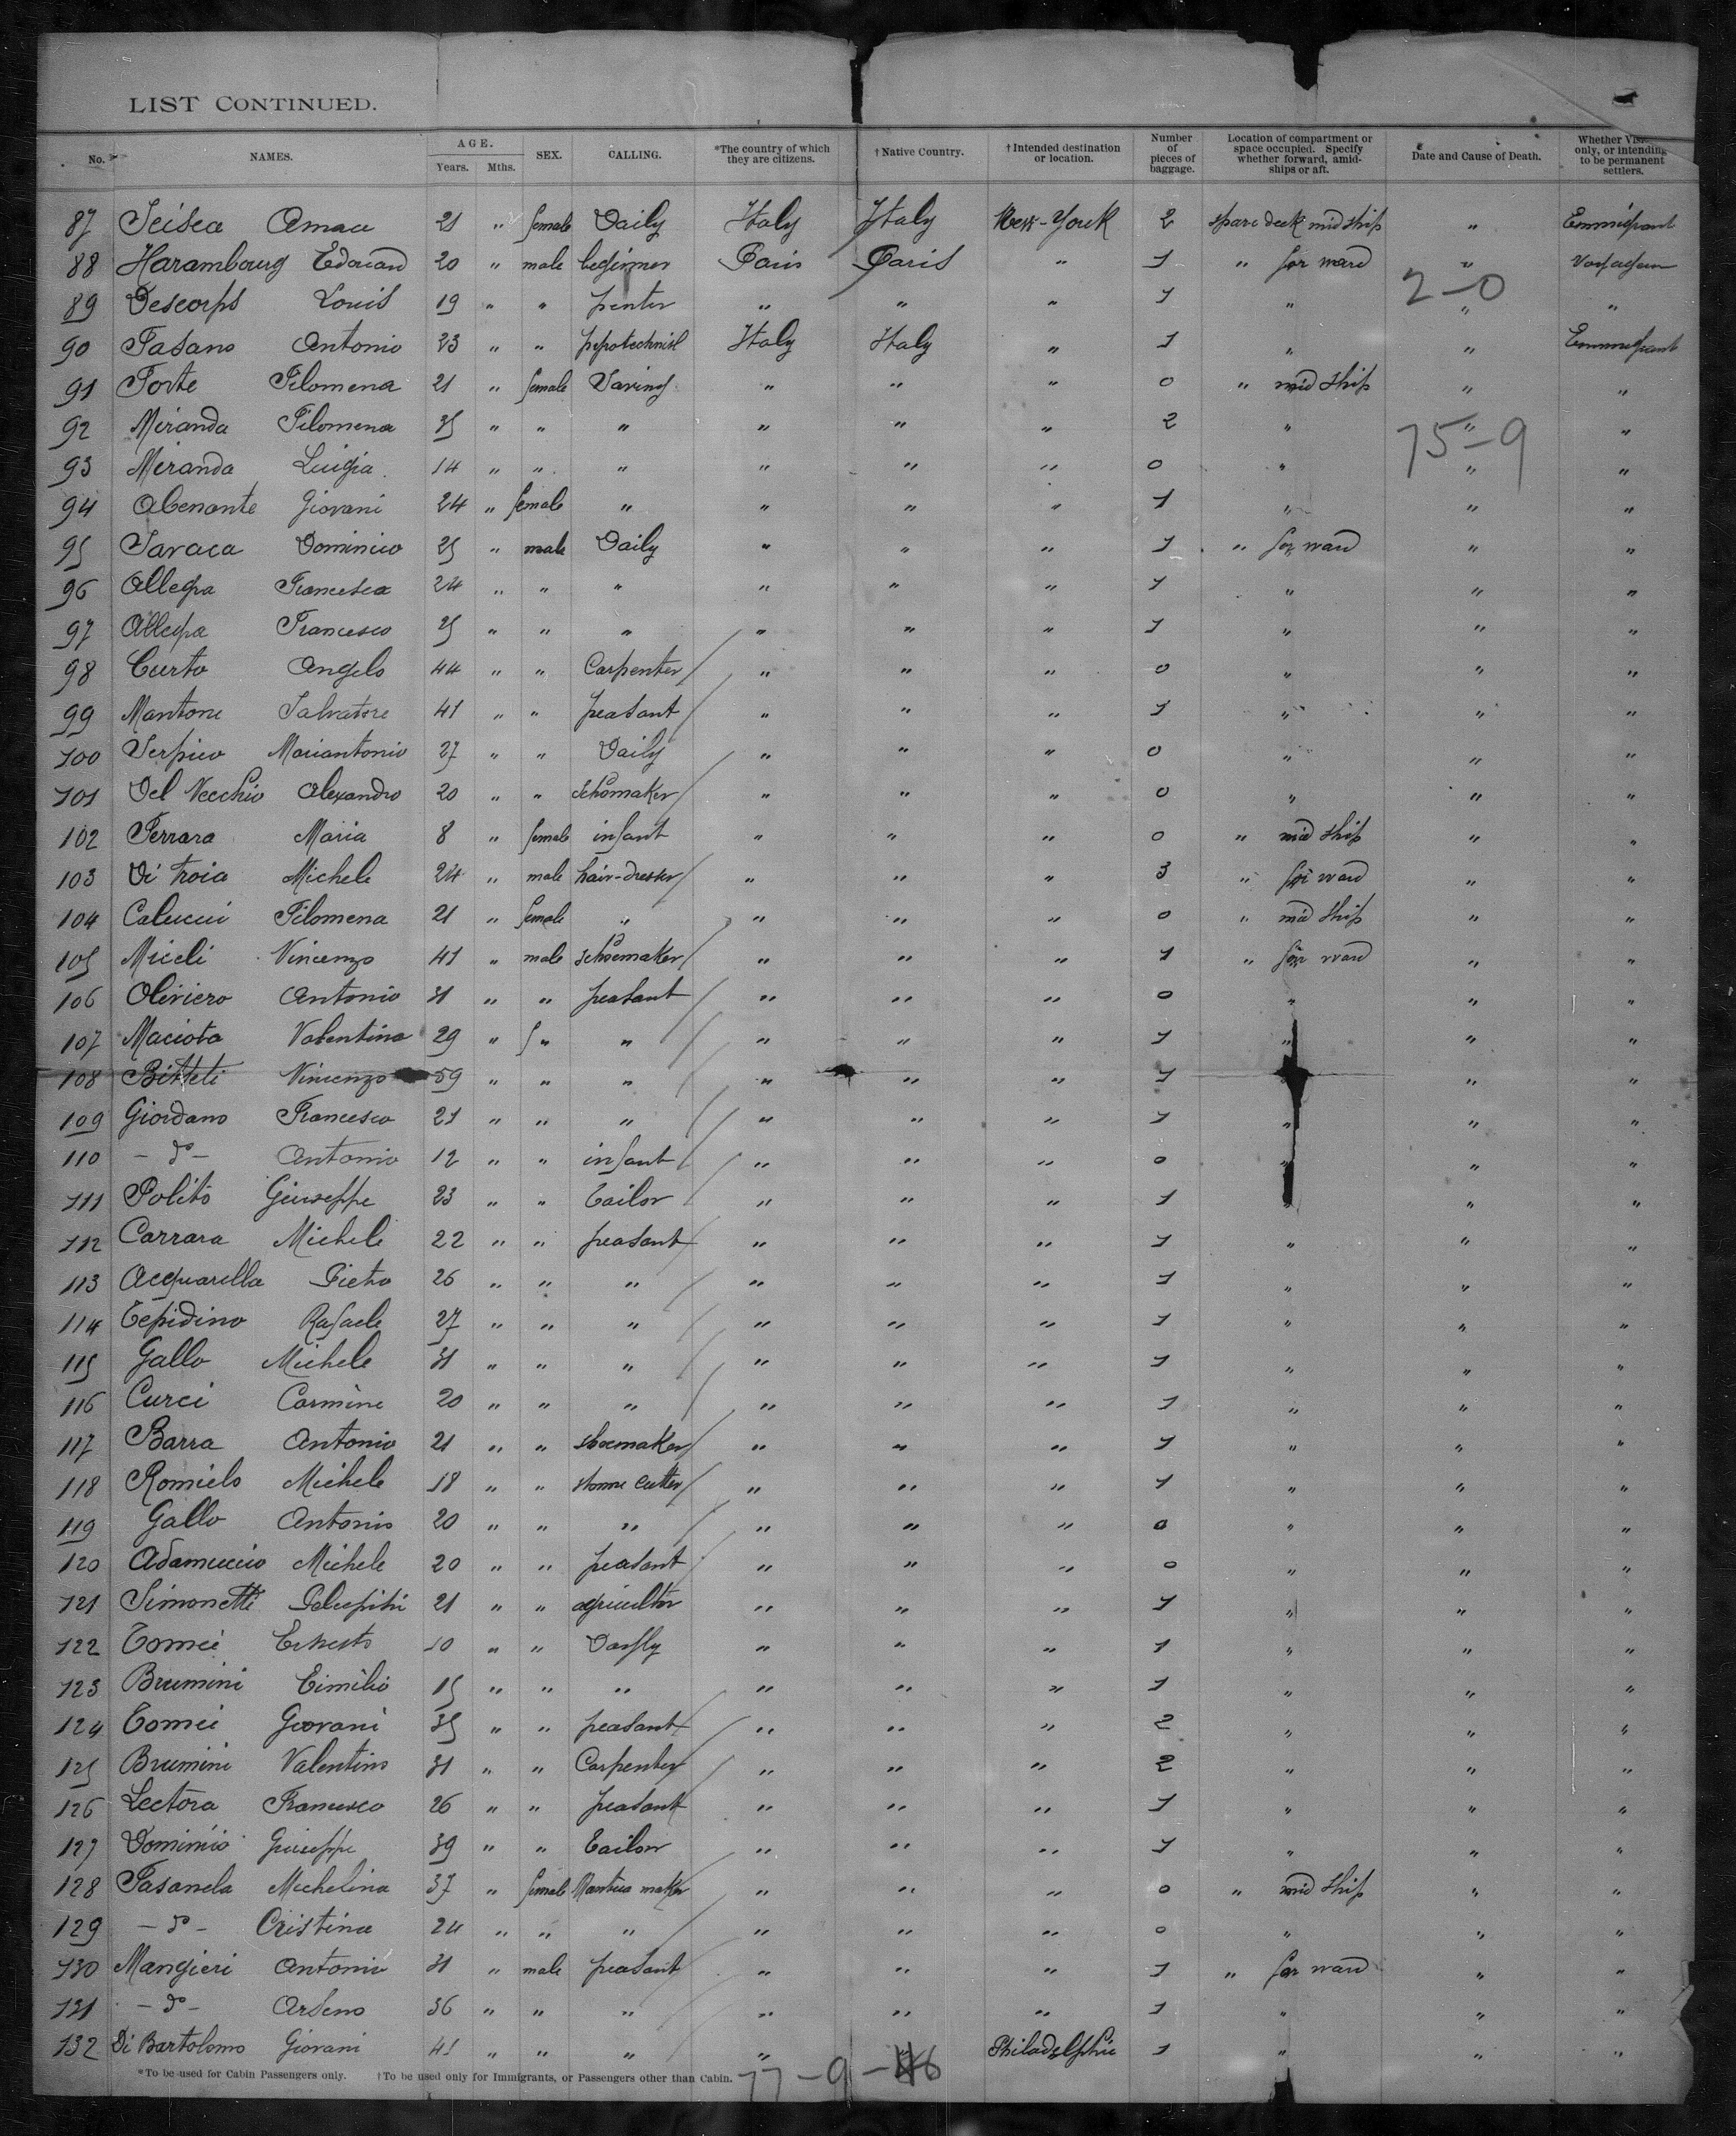 LIST CONTINUED.
No. NAMES. AGE. Years. Mths. SEX. CALLING. *The country of which they are citizens. †Native Country. †Intended destination or location. Number of pieces of baggage. Location of compartment or space occupied. Specify whether forward, amidships or aft. Date and Cause of Death. Whether only, or intending to be permanent settlers.
87 21 " female Daily Italy Italy New-York 2 spare deck mid ship " Emmigrant
88 Harambourg Edouard 20 " male beginner Paris Paris " 1 " for ward "
2-0
89 Descorps Louis 19 " " " " " 1 " " "
90 Fasano Antonio 23 " " Italy Italy " 1 " " Emmigrant
91 Forte Filomena 21 " female " " " 0 " mid ship " "
92 Miranda Filomena 35 " " " " " " 2 " " "
75-9
93 Miranda Luigia 14 " " " " " " 0 " " "
94 Abenante Giovani 24 " female " " " " 1 " " "
95 Saraca Dominico 25 " male Daily " " " 1 " for ward " "
96 Allegra Francesca 24 " " " " " " 1 " " "
97 Allegra Francesco 25 " " " " " " 1 " " "
98 Curto Angelo 44 " " Carpenter " " " 0 " " "
99 Mantone Salvatore 41 " " peasant " " " 1 " " "
100 Serpico Mariantonio 27 " " Daily " " " 0 " " "
101 Del Vecchio Alexandro 20 " " schomaker " " " 0 " " "
102 Ferrara Maria 8 " female infant " " " 0 " mid ship " "
103 Di Troia Michele 24 " male hair-dresser " " " 3 " for ward " "
104 Calucci Filomena 21 " female " " " " 0 " mid ship " "
105 Miceli Vincenzo 41 " male schoemaker " " " 1 " for ward " "
106 Oliviero Antonio 31 " " peasant " " " 0 " " "
107 Maciota Valentino 29 " " " " " " 1 " " "
108 Vincenzo 59 " " " " " " 1 " " "
109 Giordano Francesco 21 " " " " " " 1 " " "
110 - do - Antonio 12 " " infant " " " 0 " " "
111 Polito Giuseppe 23 " " Tailor " " " 1 " " "
112 Carrara Michele 22 " " peasant " " " 1 " " "
113 Acquarella Pietro 26 " " " " " " 1 " " "
114 Tepidino Rafaele 27 " " " " " " 1 " " "
115 Gallo Michele 31 " " " " " " 1 " " "
116 Curci Carmine 20 " " " " " " 1 " " "
117 Barra Antonio 21 " " shoemaker " " " 1 " " "
118 Romielo Michele 18 " " stonne cutter " " " 1 " " "
119 Gallo Antonio 20 " " " " " " 0 " " "
120 Adamuccio Michele 20 " " peasant " " " 0 " " "
121 Simonetti 21 " " agricultor " " " 1 " " "
122 Tomei Ernesto 10 " " " " " 1 " " "
123 Brumini Eimilio 15 " " " " " " 1 " " "
124 Tomei Giovani 35 " " peasant " " " 2 " " "
125 Brumini Valentino 31 " " Carpenter " " " 2 " " "
126 Lectora Francesco 26 " " peasant " " " 1 " " "
127 Dominico Giuseppe 39 " " Tailor " " " 1 " " "
128 Fasanela Michelina 37 " female Mantua maker " " " 0 " mid ship " "
129 - do - Cristina 24 " " " " " " 0 " " "
130 Mangieri Antonio 31 " male peasant " " " 1 " for ward " "
131 - do - Arseno 36 " " " " " " 1 " " "
132 Di Bartolomo Giovani 41 " " " " " Philadelphie 1 " " "
*To be used for Cabin Passengers only. †To be used only for Immigrants, or Passengers other than Cabin. 77-9-